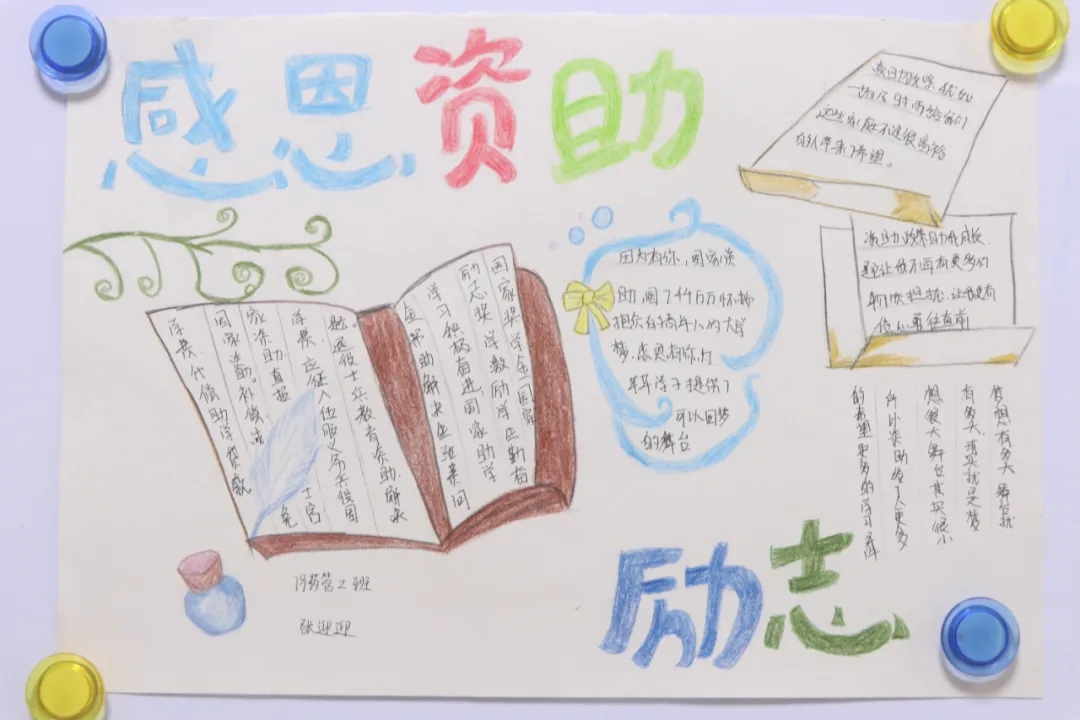 感恩资助
资助政策犹如
一场及时雨给我们
这些家庭不是很富裕
的人带来了希望。
资助政策助我成长
是它让我不再有更多的
后顾之忧
因为有你，国家资
助，圆了千百万怀揣
抱负的青年人的大学
梦，感恩有你，为
莘莘学子提供了
可以圆梦
的舞台
国家奖学金、国家
励志奖学激励学生勤奋
学习积极有进，国家助学
金帮助解决生活费问
题，退役士兵教育资助，解决
学费，应征入伍服义务兵役国
家资助，直招士官
国家资助。补偿
学费，代偿助学贷款
免
梦想有多大 舞台就
有多大，其实就是梦
想很大舞台其实很小
所以资助给了人更多
的希望更多的学习
19药营2班
张迎迎
励志